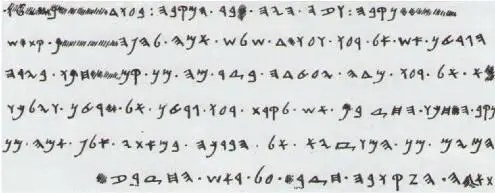 𐤄𐤍𐤒𐤁𐤄 : 𐤅𐤆𐤄 . 𐤄𐤉𐤄 . 𐤃𐤁𐤓 . 𐤄𐤍𐤒𐤁𐤄 : 𐤁𐤏𐤅𐤃
𐤄𐤂𐤓𐤆𐤍 . 𐤀𐤔 . 𐤀𐤋 . 𐤓𐤏𐤅 . 𐤅𐤁𐤏𐤅𐤃 . 𐤔𐤋𐤔 . 𐤀𐤌𐤕 . 𐤋𐤄 𐤒𐤋 . 𐤀𐤔 . 𐤒
𐤓𐤀 . 𐤀𐤋 . 𐤓𐤏𐤅 . 𐤊𐤉 . 𐤄𐤉𐤕 . 𐤆𐤃𐤄 . 𐤁𐤑𐤓 . 𐤌𐤉𐤌𐤍
𐤍𐤒𐤁𐤄 . 𐤄𐤊𐤅 . 𐤄𐤇𐤑𐤁𐤌 . 𐤀𐤔 . 𐤋𐤒𐤓𐤕 . 𐤓𐤏𐤅 . 𐤂𐤓𐤆𐤍 . 𐤏𐤋 . 𐤂𐤓𐤆𐤍 . 𐤅𐤉𐤋𐤊𐤅
𐤄𐤌𐤉𐤌 . 𐤌𐤍 . 𐤄𐤌𐤅𐤑𐤀 . 𐤀𐤋 . 𐤄𐤁𐤓𐤊𐤄 . 𐤁𐤌𐤀𐤕𐤉𐤌 . 𐤅𐤀𐤋𐤐 . 𐤀𐤌𐤄 . 𐤅𐤌
𐤀𐤕 . 𐤀𐤌𐤄 . 𐤄𐤉𐤄 . 𐤂𐤁𐤄 . 𐤄𐤑𐤓 . 𐤏𐤋 . 𐤓𐤀𐤔 . 𐤄𐤇𐤑𐤁𐤌